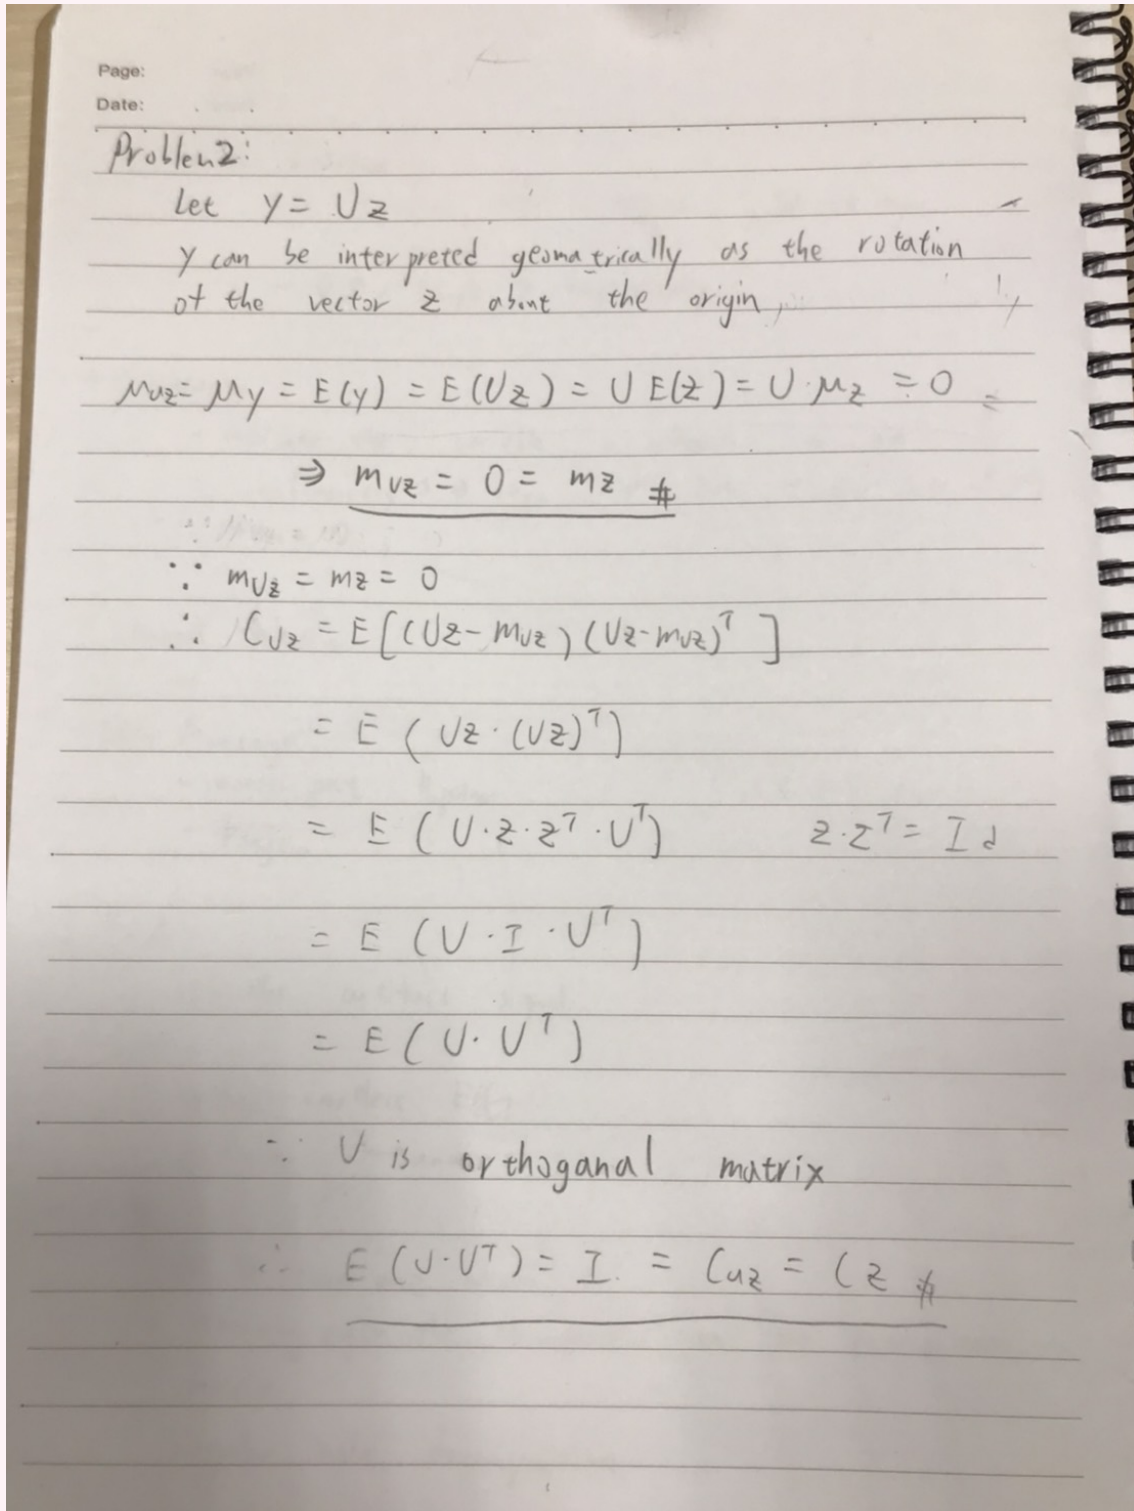 Page:
Date:
Problem2:
Let y = Uz
y can be interpreted geomatrically as the rotation
of the vector z about the origin,
μuz = μy = E(y) = E(Uz) = U E(z) = U·μz = 0
⇒ mUz = 0 = mz #
∵ mUz = mz = 0
∴ CUz = E[(Uz-mUz)(Uz-mUz)ᵀ]
= E (Uz·(Uz)ᵀ)
= E (U·z·zᵀ·Uᵀ) z·zᵀ = Id
= E (U·I·Uᵀ)
= E (U·Uᵀ)
∵ U is orthoganal matrix
∴ E (U·Uᵀ) = I = Cuz = Cz #